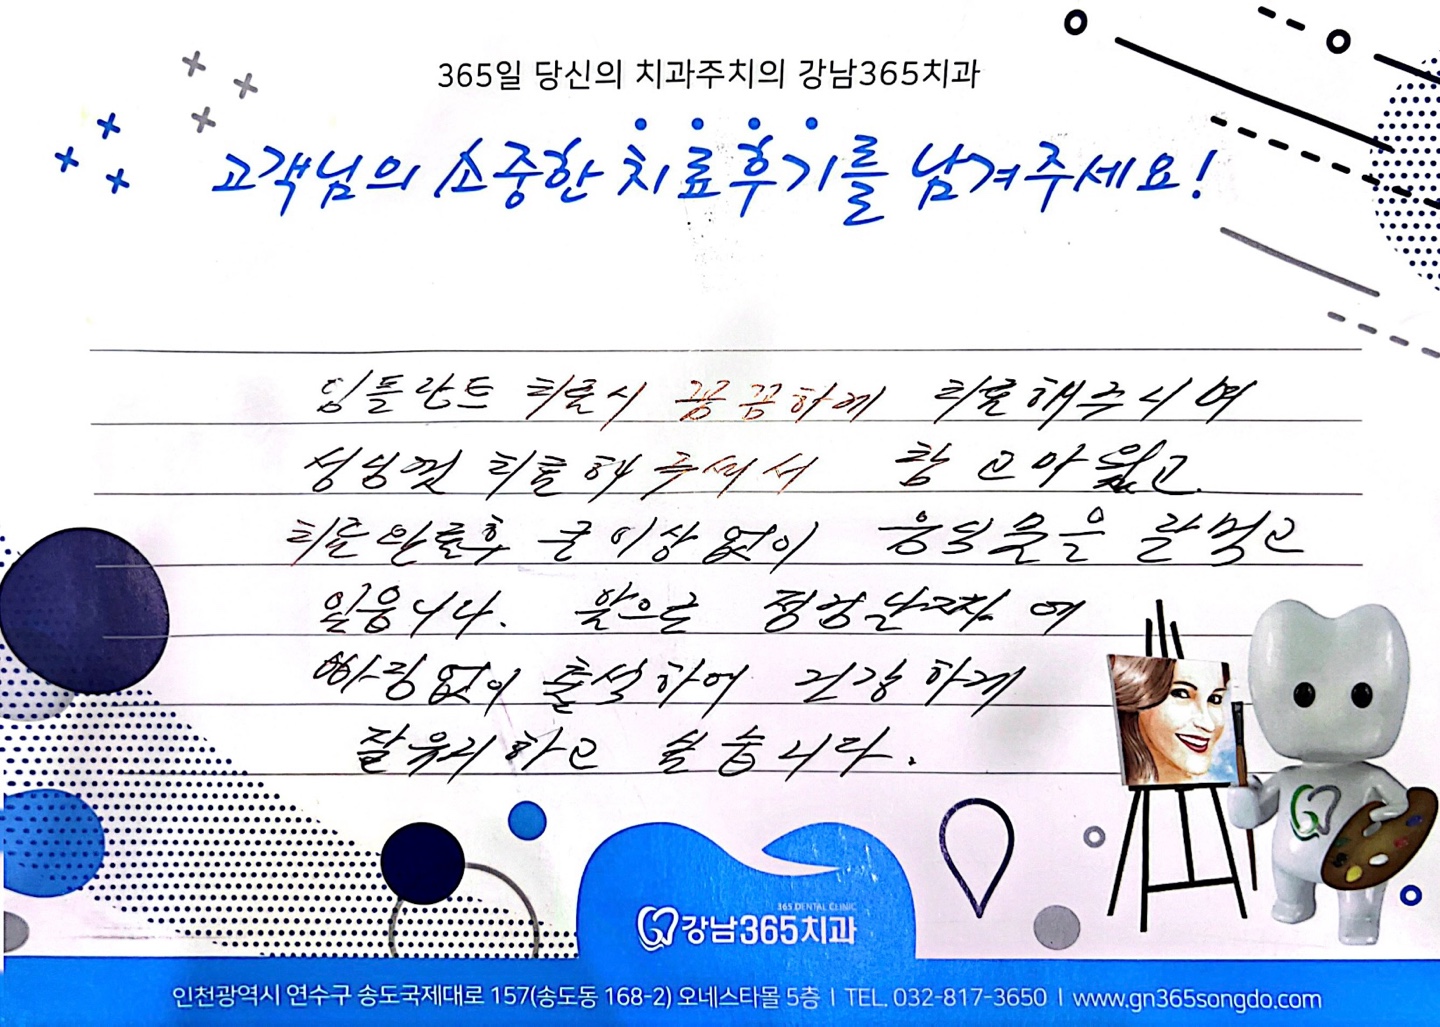 365일 당신의 치과주치의 강남365치과
고객님의 소중한 치료후기를 남겨주세요!
임플란트 치료시 꼼꼼하게 치료해주시며
성심껏 치료해 주셔서 참 고마웠고
치료완료후 큰 이상 없이 음식물을 잘먹고
있읍니다. 앞으로 정검날자에
빠짐없이 출석하여 건강하게
잘 유지하고 싶습니다.
365 DENTAL CLINIC
강남365치과
인천광역시 연수구 송도국제대로 157(송도동 168-2) 오네스타몰 5층 | TEL. 032-817-3650 | www.gn365songdo.com